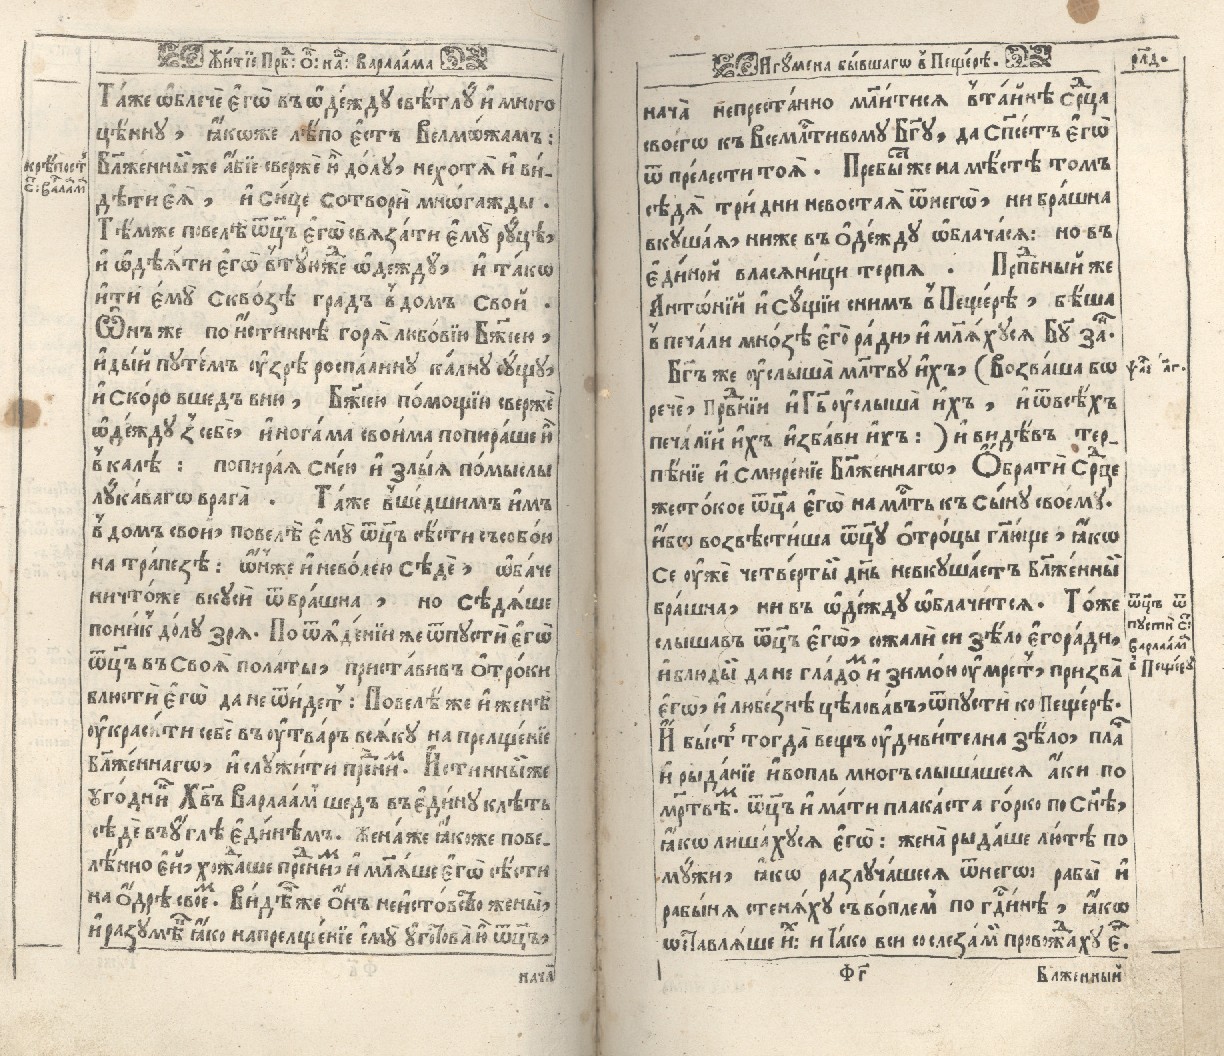 Жи́тїе Прⷣб: Ѻ҃: на́: Варлаа́ма
Та́же ѡ҆блечѐ є҆гѡ̀ въ ѡ҆де́жду свѣ́тлу и҆ много
цѣ́нну, ꙗ҆́коже лѣ́по є҆́стъ Велмѡ́жамъ:
Бл҃же́нный же а҆́бїе све́рже ю҆̀ до́лу, нехотѧ̀ и҆ ви-
дѣти є҆ѧ̀, и҆ си́це сотворѝ мно́гажды.
Тѣ́мже повелѣ̀ ѿц҃ъ є҆гѡ̀ свѧза́ти є҆мꙋ̀ рꙋ́цѣ,
и҆ ѡ҆дѣ́ѧти є҆гѡ̀ в̾тꙋ́юже ѡ҆де́ждꙋ, и҆ та́кѡ
и҆ти є҆мꙋ̀ сквозѣ̀ градъ в̾ до́мъ сво́й.
Ѻ҆́нъ же поистиннѣ горѧ̀ любо́вїю Бж҃їею,
и҆ды́й пꙋте́мъ ᲂу҆зрѣ̀ роспа́лину ка́лну сꙋ́щꙋ,
и҆ ско́ро вшедъ в ню̀, Бж҃їею по́мощїю све́рже
ѡ҆де́ждꙋ з̾ себѐ, и҆ нога́ма свои́ма попира́ше ю҆̀
в̾ ка́лѣ: попира́ѧ с не́ю и҆ злы́ѧ по́мыслы
лꙋка́вагѡ врага̀. Та́же в̾ше́дшимъ и҆̀мъ
в̾ до́мъ свой, повелѣ̀ є҆мꙋ̀ ѿц҃ъ сѣ́сти съ собо́ю
на тра́пезѣ: ѻ҆́нже и҆ нево́лею сѣ́де, ѻ҆ба́че
ничто́же вкуси̂ ѿ бра́шна, но сѣдѧ́ше
пони́къ до́лꙋ зрѧ. По ѿѧде́нїи же ѿпустѝ є҆гѡ̀
ѿц҃ъ въ своѧ̀ пола́ты, приста́вивъ ѻ҆́троки
блюстѝ є҆гѡ̀ да не ѿи́детъ: Повелѣ́ же и҆ женѣ̀
ᲂу҆краси́ти себѐ въ ᲂу҆́тварь всѧ́ку на прелще́нїе
Бл҃же́ннагѡ, и҆ слꙋжи́ти прⷣе ни́мъ. И҆́стинный же
ᲂу҆го́дникъ Хв҃ъ Варлаа́мъ шедъ въ є҆ди́нꙋ клѣ́ть
сѣ́де въ ᲂу҆́глѣ є҆ди́нѣмъ. Жена́ же ꙗ҆́коже пове-
лѣ́нно є҆́й, хожда́ше прⷣе ни́мъ, и҆ мл҃ѧ́ше є҆гѡ̀ сѣ́сти
на ѻ҆дрѣ̀ свое́мъ. Ви́дѣв же ѻ҆́нъ неи́стовство жены̀,
и҆ разꙋмѣ́въ ꙗ҆́ко на прелще́нїе є҆мꙋ̀ ᲂу҆гото́ва ю҆̀ ѿц҃ъ,
нача̀
крѣ́пость
с: Варлаам
И҆гꙋ́мена бы́вшагѡ в̾ Пеще́рѣ.
рл҃д.
нача̀ непреста́нно мл҃и́тисѧ в̾ та́йнѣ срⷣца
своегѡ̀ къ Всемлⷭ҇тивому Бг҃ꙋ, да сп҃се́тъ є҆гѡ̀
ѿ пре́лести тоѧ̀. Пребы́сть же на мѣ́стѣ томъ
сѣдѧ̀ три́ дни невостаѧ̀ ѿ негѡ̀, ни бра́шна
вкꙋша́ѧ, ниже въ ѻ҆де́ждꙋ ѡ҆блача́сѧ: но въ
є҆ди́ной власѧни́ци терпѧ̀. Прⷣпбный же
Анто́нїй и҆ сꙋ́щїи с нимъ в̾ Пеще́рѣ, бѣ́ша
в̾ печа́ли мно́зѣ є҆гѡ̀ ра́ди, и҆ мл҃ѧ́хꙋсѧ Бг҃ꙋ за́нь.
Бг҃ъ же ᲂу҆слы́ша мл҃твꙋ и҆́хъ, (Возва́ша бо
рече̂, Прⷣвнїи и҆ Гь҃ ᲂу҆слы́ша и҆́хъ, и҆ ѿ всѣ́хъ
печа́лїй и҆́хъ и҆зба́ви и҆́хъ:) и҆ ви́дѣвъ тер-
пѣ́нїе и҆ смире́нїе Бл҃же́ннагѡ, Ѻ҆братѝ срⷣце
жесто́кое ѿц҃а є҆гѡ̀ на млⷭ҇ть къ сы́ну своемꙋ̀.
И҆́бо возвѣсти́ша ѿц҃ꙋ ѻ҆́троцы гл҃ю́ще, ꙗ҆́кѡ
се ᲂу҆же̂ четве́ртый дн҃ь невкꙋша́етъ бл҃же́нный
бра́шна, ни въ ѡ҆де́ждꙋ ѡ҆блачи́тсѧ. То́же
слы́шавъ ѿц҃ъ є҆гѡ̀, сожали́ си ѕѣло̀ є҆го̀ ра́ди,
и҆ блюды́й да не гла́домъ и҆ зимо́ю ᲂу҆́мретъ, призва̀
є҆гѡ̀, и҆ любе́знѣ цѣлова́въ, ѿпустѝ ко Пеще́рѣ.
И҆ бы́сть тогда̀ вещъ ᲂу҆диви́телна ѕѣло̀, пла́чь
и҆ рыда́нїе и҆ во́пль мно́гъ слы́шашесѧ а҆́ки по
мр҃твѣмъ. ѿц҃ъ и҆ ма́ти плака́ста го́рко по сн҃ѣ,
ꙗ҆́кѡ лиша́хꙋсѧ є҆гѡ̀: жена̀ рыда́ше лю́тѣ по
мꙋ́жи, ꙗ҆́кѡ разлꙋча́шесѧ ѿ негѡ̀: рабы̀ и҆
рабы́нѧ стенѧ́хꙋ съ во́племъ по гдⷭ҇и́нѣ, ꙗ҆́кѡ
ѡ҆ставлѧ́ше и҆́хъ: и та́ко вси со слеза́ми провожда́хꙋ є҆го̀.
ѱал: лг.
ѿц҃ъ ѿ
пустѝ с:
варлаа́ма
в̾ Пеще́рꙋ
ф҃г
Блаженный